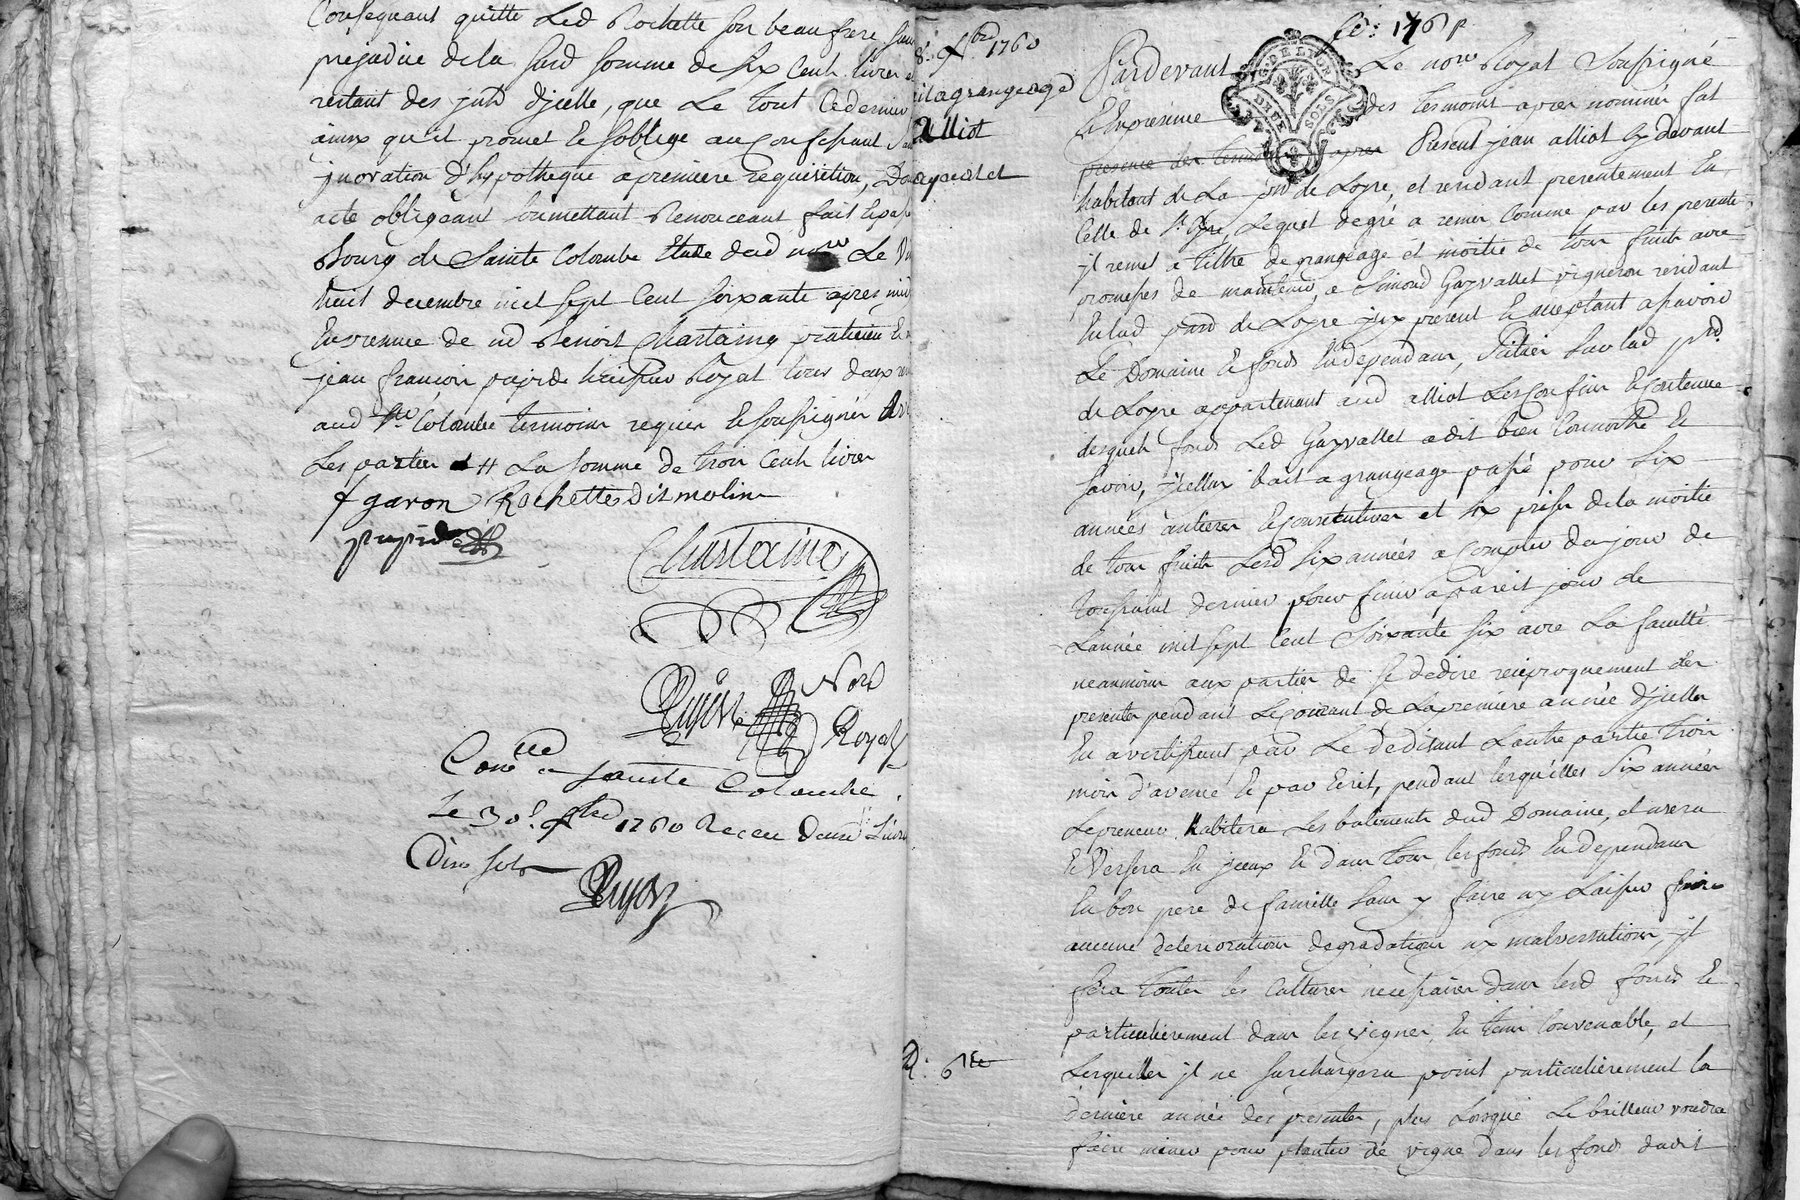 Consequant quitte Led Rochette son beaufrere sans
prejudice de la surd somme de six Cent livres
restant des just d'jcelle, que Le tout Cedernier
ainsy qu'il promet et soblige au Consessant
jnovation d'hypotheque a premiere requisition,
acte obligeant soumettant Renonceant fait et passé
Bourg de Sainte Colombe Etude dud nore Le
huit decembre mil sept Cent soixante apres midy
En presence de Benoit Chastaing praticien
jean françois huissier Royal tous deux
aud Ste Colombe temoins requis et soussignés
Les parties # La somme de trois Cent livres
f garon Rochettes dit molin
Chastaing
Puyoz Nore
Royal
Conlle a sainte Colombe
Le 30e Xbre 1760 Receu douze Livres
Dix sols
Puyoz
8e Xbre 1760
grangeage
alliot
1761
G. DE LYON
DEUX SOLS
Pardevant Le nore Royal Soussigné
Et En presence des temoins apres nommés fut
presence des temoins apres Present jean alliot cy devant
habitant de La de Loyre, et residant presentement En
Celle de St Lequel de gré a remis Comme par les presentes
jl remet a tiltre de grangeage et moitie de tous fruits avec
promesses de maintenir, a Simond Gayvallet vigneron residant
En lad parr de Loyre jcy present et acceptant asavoir
Le Domaine et fonds En dependant, Scitués sur lad prd
de Loyre appartenant aud alliot Les Confins et Contenue
desquels fonds Led Gayvallet a dit bien Connoitre et
savoir, jcelluy bail a grangeage passé pour six
années antieres et Consecutives et six prises de la moitie
de tous fruits Lesd six années a Compter du jour de
toussaint dernier pour finir a pareil jour de
Lannée mil sept Cent soixante six avec La faculté
neanmoins aux parties de se dedire reciproquement des
presentes pendant Le Courant de La premiere année d'jcelles
En avertissant par Le dedisant Lautre partie trois
mois d'avence et par Ecrit, pendant lesquelles Six années
Le preneur habitera Les batiments dud Domaine, et usera
et Versera En jceux et dans tous les fonds En dependants
En bon pere de famille sans y faire ny Laisser faire
aucune deterioration degradation ny malversation, jl
fera toutes les Cultures necessaires dans lesd fonds et
particulierement dans les vignes, En tems Convenable, et
Lesquelles jl ne surchargera point particulierement la
derniere année des presentes, plus Lorsque Le bailleur voudra
faire miner pour planter de vigne dans les fonds dudit